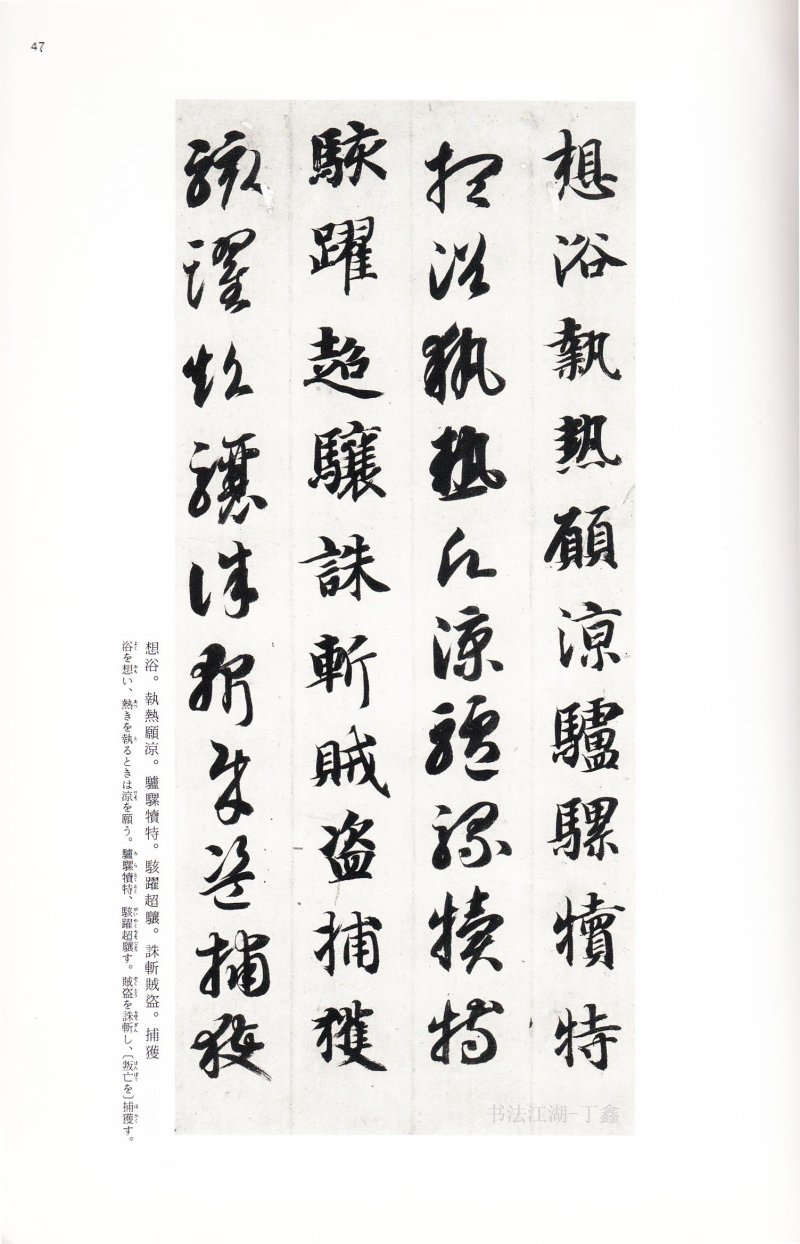 47
想浴執熱願凉驢騾犢特
想浴執熱願凉驢騾犢特
駭躍超驤誅斬賊盗捕獲
駭躍超驤誅斬賊盗捕獲
想浴。執熱願凉。驢騾犢特。駭躍超驤。誅斬賊盗。捕獲
浴を想い、熱きを執るときは凉を願う。驢騾犢特、駭躍超驤す。賊盗を誅斬し、〔叛亡を〕捕獲す。
书法江湖-丁鑫